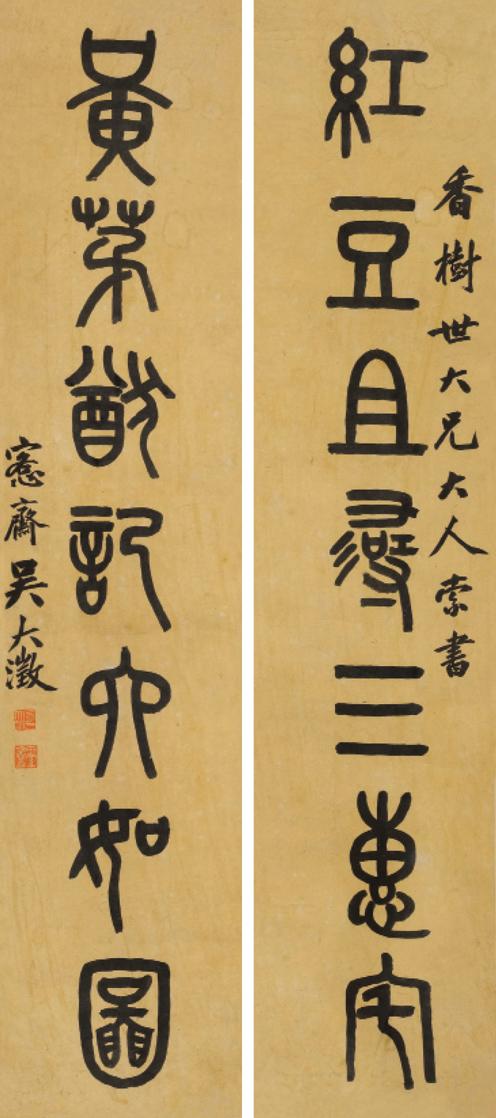 香樹世大兄大人索書
紅豆且尋三惠宅
黃茅猷記六如圖
愙齋吳大澂